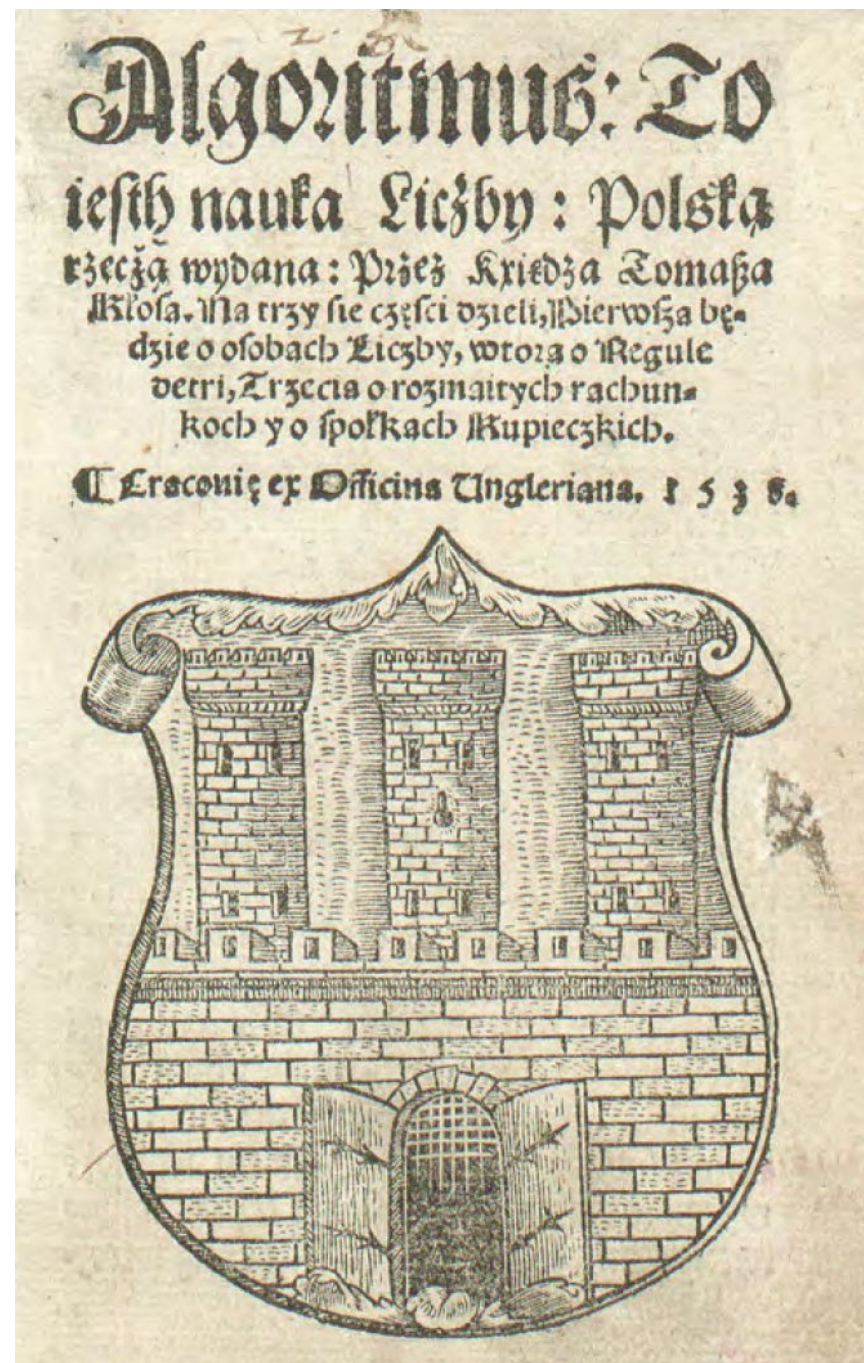 Algoritmus: To
iesth nauka Liczby : Polską
rzeczą wydana : Przez Kxiedza Tomaſza
Kłoſa. Na trzy ſie częſci dzieli, Pierwſza bę-
dzie o oſobach Liczby, wtora o Regule
detri, Trzecia o rozmaitych rachun-
koch y o ſpołkach Kupieczkich.
¶ Craconię ex Officina Ungleriana. 1 5 3 8.